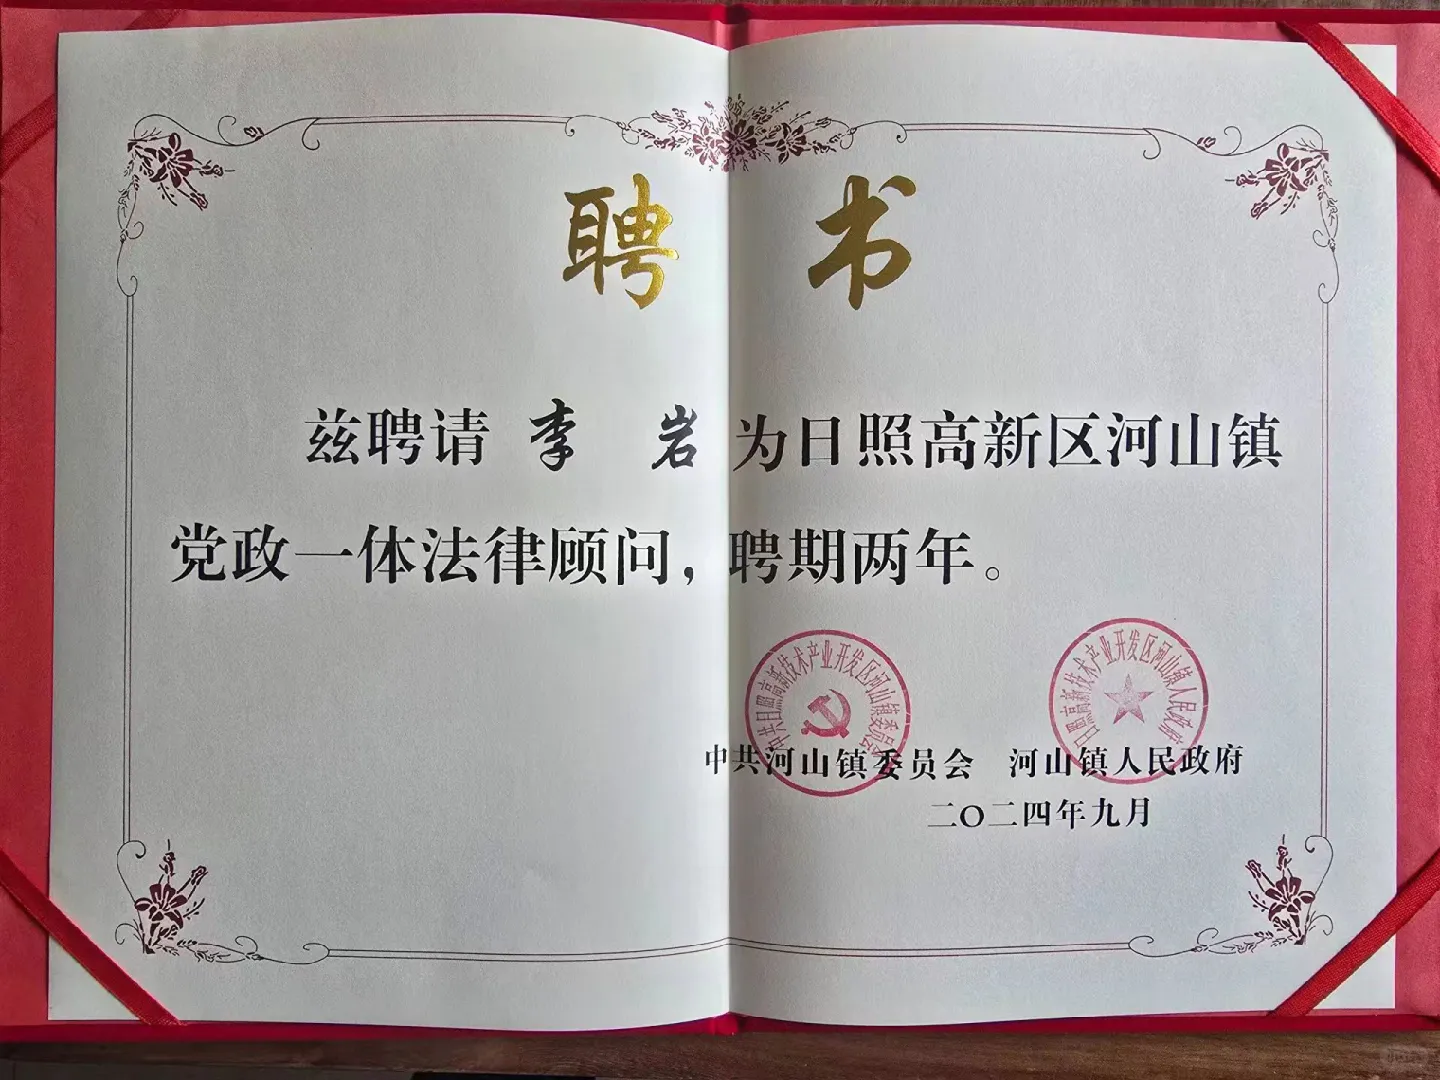 聘书
兹聘请 李 岩 为日照高新区河山镇
党政一体法律顾问，聘期两年。
中共日照高新技术产业开发区河山镇委员会
日照高新技术产业开发区河山镇人民政府
中共河山镇委员会 河山镇人民政府
二〇二四年九月